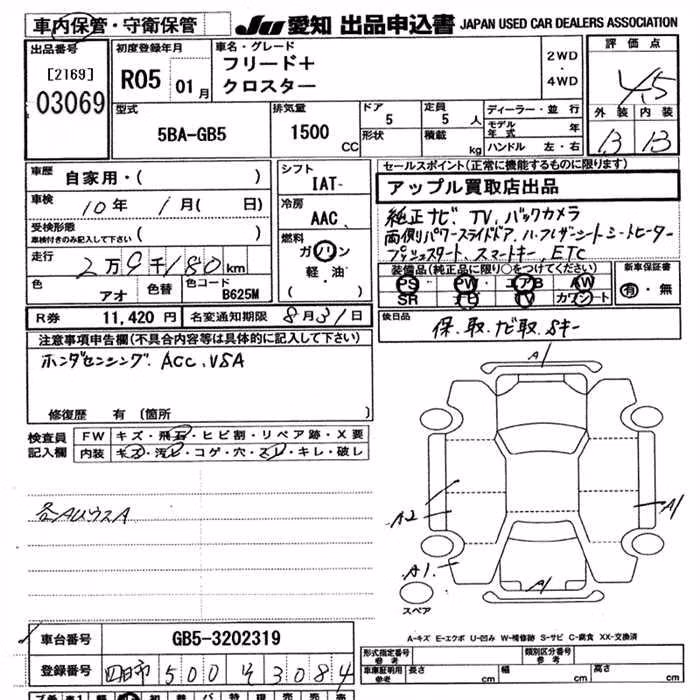 車内保管・守衛保管
JU 愛知 出品申込書 JAPAN USED CAR DEALERS ASSOCIATION
出品番号
[2169]
03069
初度登録年月
R05 01月
車名・グレード
フリード+
クロスター
2WD
・
4WD
評価点
4.5
外装 内装
13 13
型式
5BA-GB5
排気量
1500 CC
ドア
5
形状
定員
5人
積載
kg
ディーラー・並行
モデル年式 年
ハンドル 左・右
車歴 自家用・( )
車検 10年 1月( 日)
受検形態
車検付きのみ記入して下さい ( )
走行 2万9千180km
色 アオ 色替 色コード B625M
シフト
IAT-
冷房
AAC
燃料
ガソリン
軽・油
( )
セールスポイント(正常に機能するものに限ります)
アップル買取店出品
純正ナビ、TV、バックカメラ
両側パワースライドドア、ハーフレザーシート シートヒーター
プッシュスタート、スマートキー、ETC
装備品(純正品に限り○をつけてください)
PS PW エアB AW
SR ナビ TV カワシート
新車保証書
有・無
R券 11,420円 名変通知期限 8月31日
後日品
保、取、ナビ取、Sキー
注意事項申告欄(不具合内容等は具体的に記入して下さい)
ホンダセンシング、ACC、VSA
修復歴 有 (箇所 )
検査員
記入欄
FW キズ・飛石・ヒビ割・リペア跡・X要
内装 キズ・汚レ・コゲ・穴・スレ・キレ・破レ
A1
A2
A1
A1
A1
スペア
A-キズ E-エクボ U-凹み W-補修跡 S-サビ C-腐食 XX-交換済
車台番号 GB5-3202319
登録番号 四日市 500 そ 3084
形式指定番号
参考
類別区分番号
参考
車庫証明用
参考
長さ cm 幅 cm 高さ cm